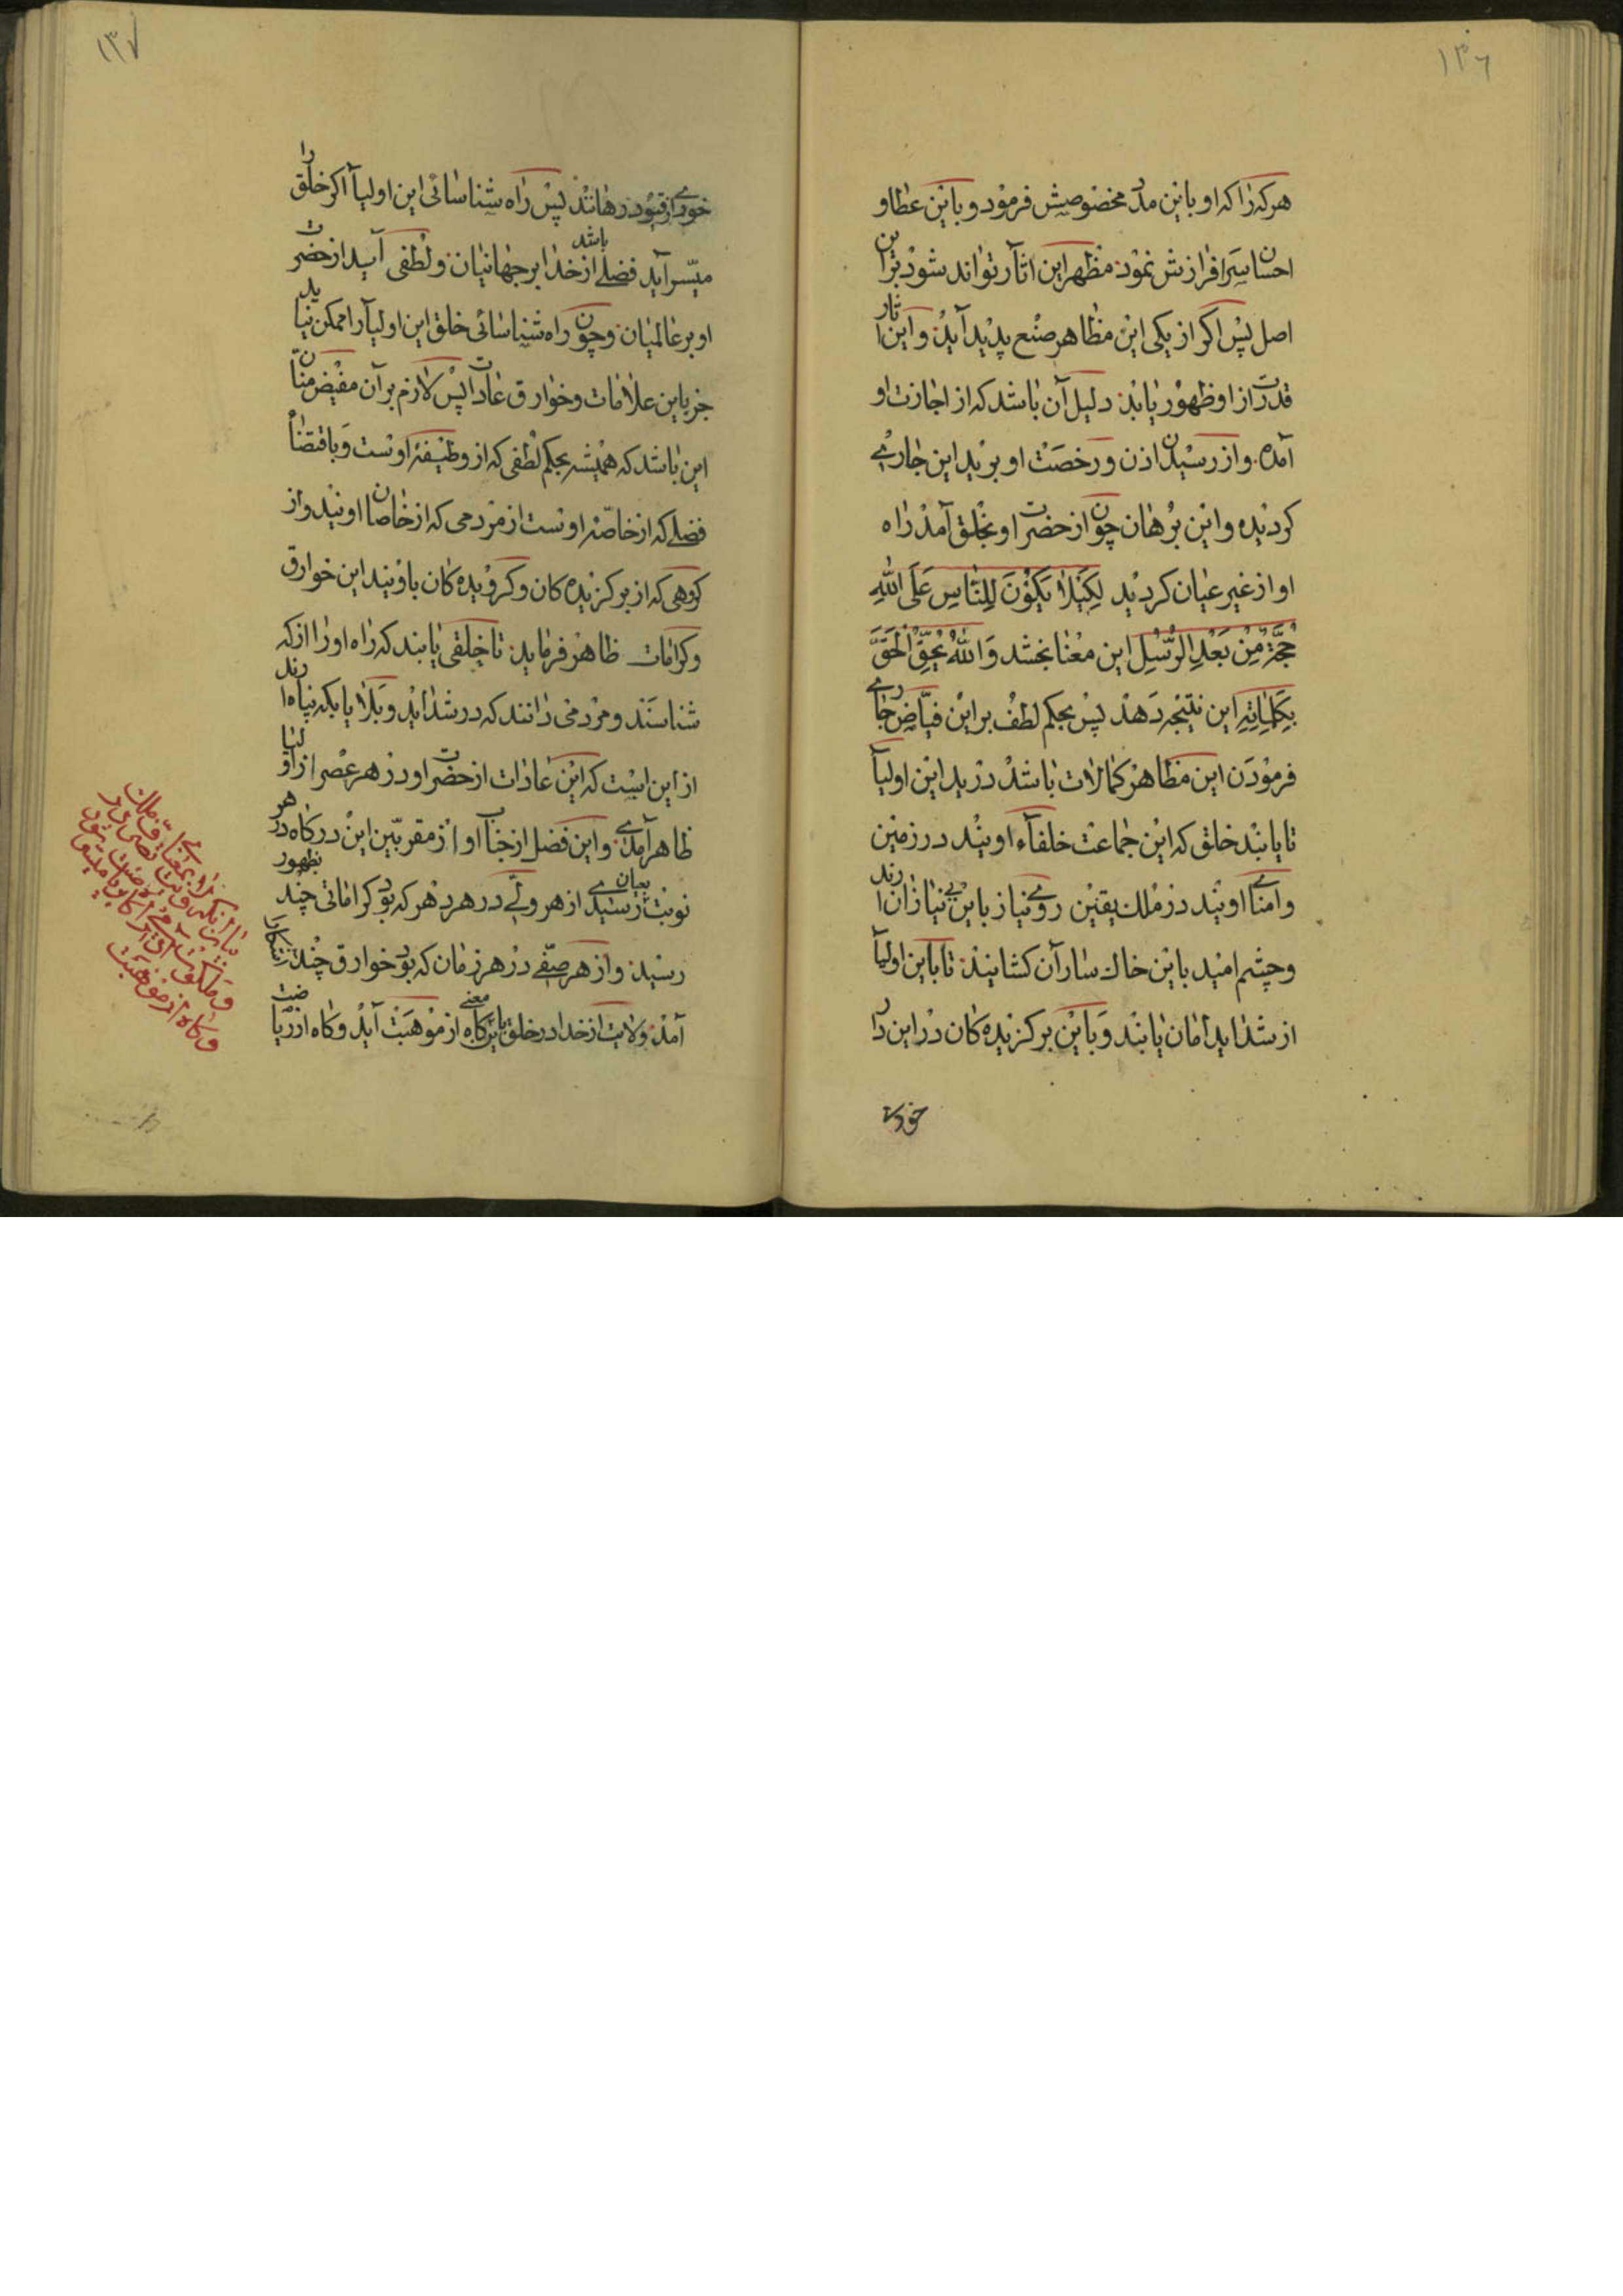 ١٣٦
هرکه را که او باین مدد مخصوصیش فرمود و باین عطا و
احسان سرافرازش نمود مظهر این اثار تواند شود براین
اصل پس اکر از یکی این مظاهر صنع پدید آید و این اثار
قدرت از او ظهور یابد دلیل آن باشد که از اجازت او
آمده و از رسیدن اذن و رخصت او برید این جاری
کردیده و این برهان چون از حضرت او بخلق آمد راه
او از غیر عیان کردید لِکَیلا یَکُونَ لِلنّاسِ عَلَی اللهِ
حُجَّةٌ مِن بَعدِ الرُّسُلِ این معنا بخشد وَاللهُ یُحِقُّ الحَقَّ
بِکَلِماتِهِ این نتیجه دهد پس بحکم لطف بر این فیاض جاری
فرمودن این مظاهر کمالات باشد در ید این اولیآ
تا یابند خلق که این جماعت خلفآء اویند در زمین
وامنای اویند در ملک یقین روی نیاز باین بی نیازان ارند
و چشم امید باین خاک ساران کشایند تا باین اولیآ
از شداید امان یابند و باین برکزیده کان در این دار
خودی
١٣٧
خودی از قیود رهانند پس راه شناسائی این اولیآ اکر خلق را
میسر آید فضلی باشد از خدا بر جهانیان و لطفی آید از حضرت
او بر عالمیان و چون راه شناسائی خلق این اولیآ را ممکن نیاید
جز باین علامات و خوارق عادات پس لازم بر آن مفیض منان
این باشد که همیشه بحکم لطفی که از وظیفهٔ اوست و باقتضآ
فضلی که از خاصهٔ اوست از مردمی که از خاصان اویند و از
کروهی که از برکزیده کان و کرویده کان باویند این خوارق
و کرامات ظاهر فرماید تا خلقی یابند که راه او را از که
شناسند و مردمی دانند که در شداید و بلایا بکه پناه ارند
از این است که این عادات از حضرت او در هر عصر از اولیا
ظاهر آمدی و این فضل از جناب او از مقربین این درکاه در هر
نوبت بعیان رسیدی از هر ولی در هر دهر که بود کراماتی چند بظهور
رسید و از هر صفی در هر زمان که بود خوارق چند
آمد ولایت از خدا در خلق باین معنی کاه از موهبت آید و کاه از ریاضت
و کاه از موهبت